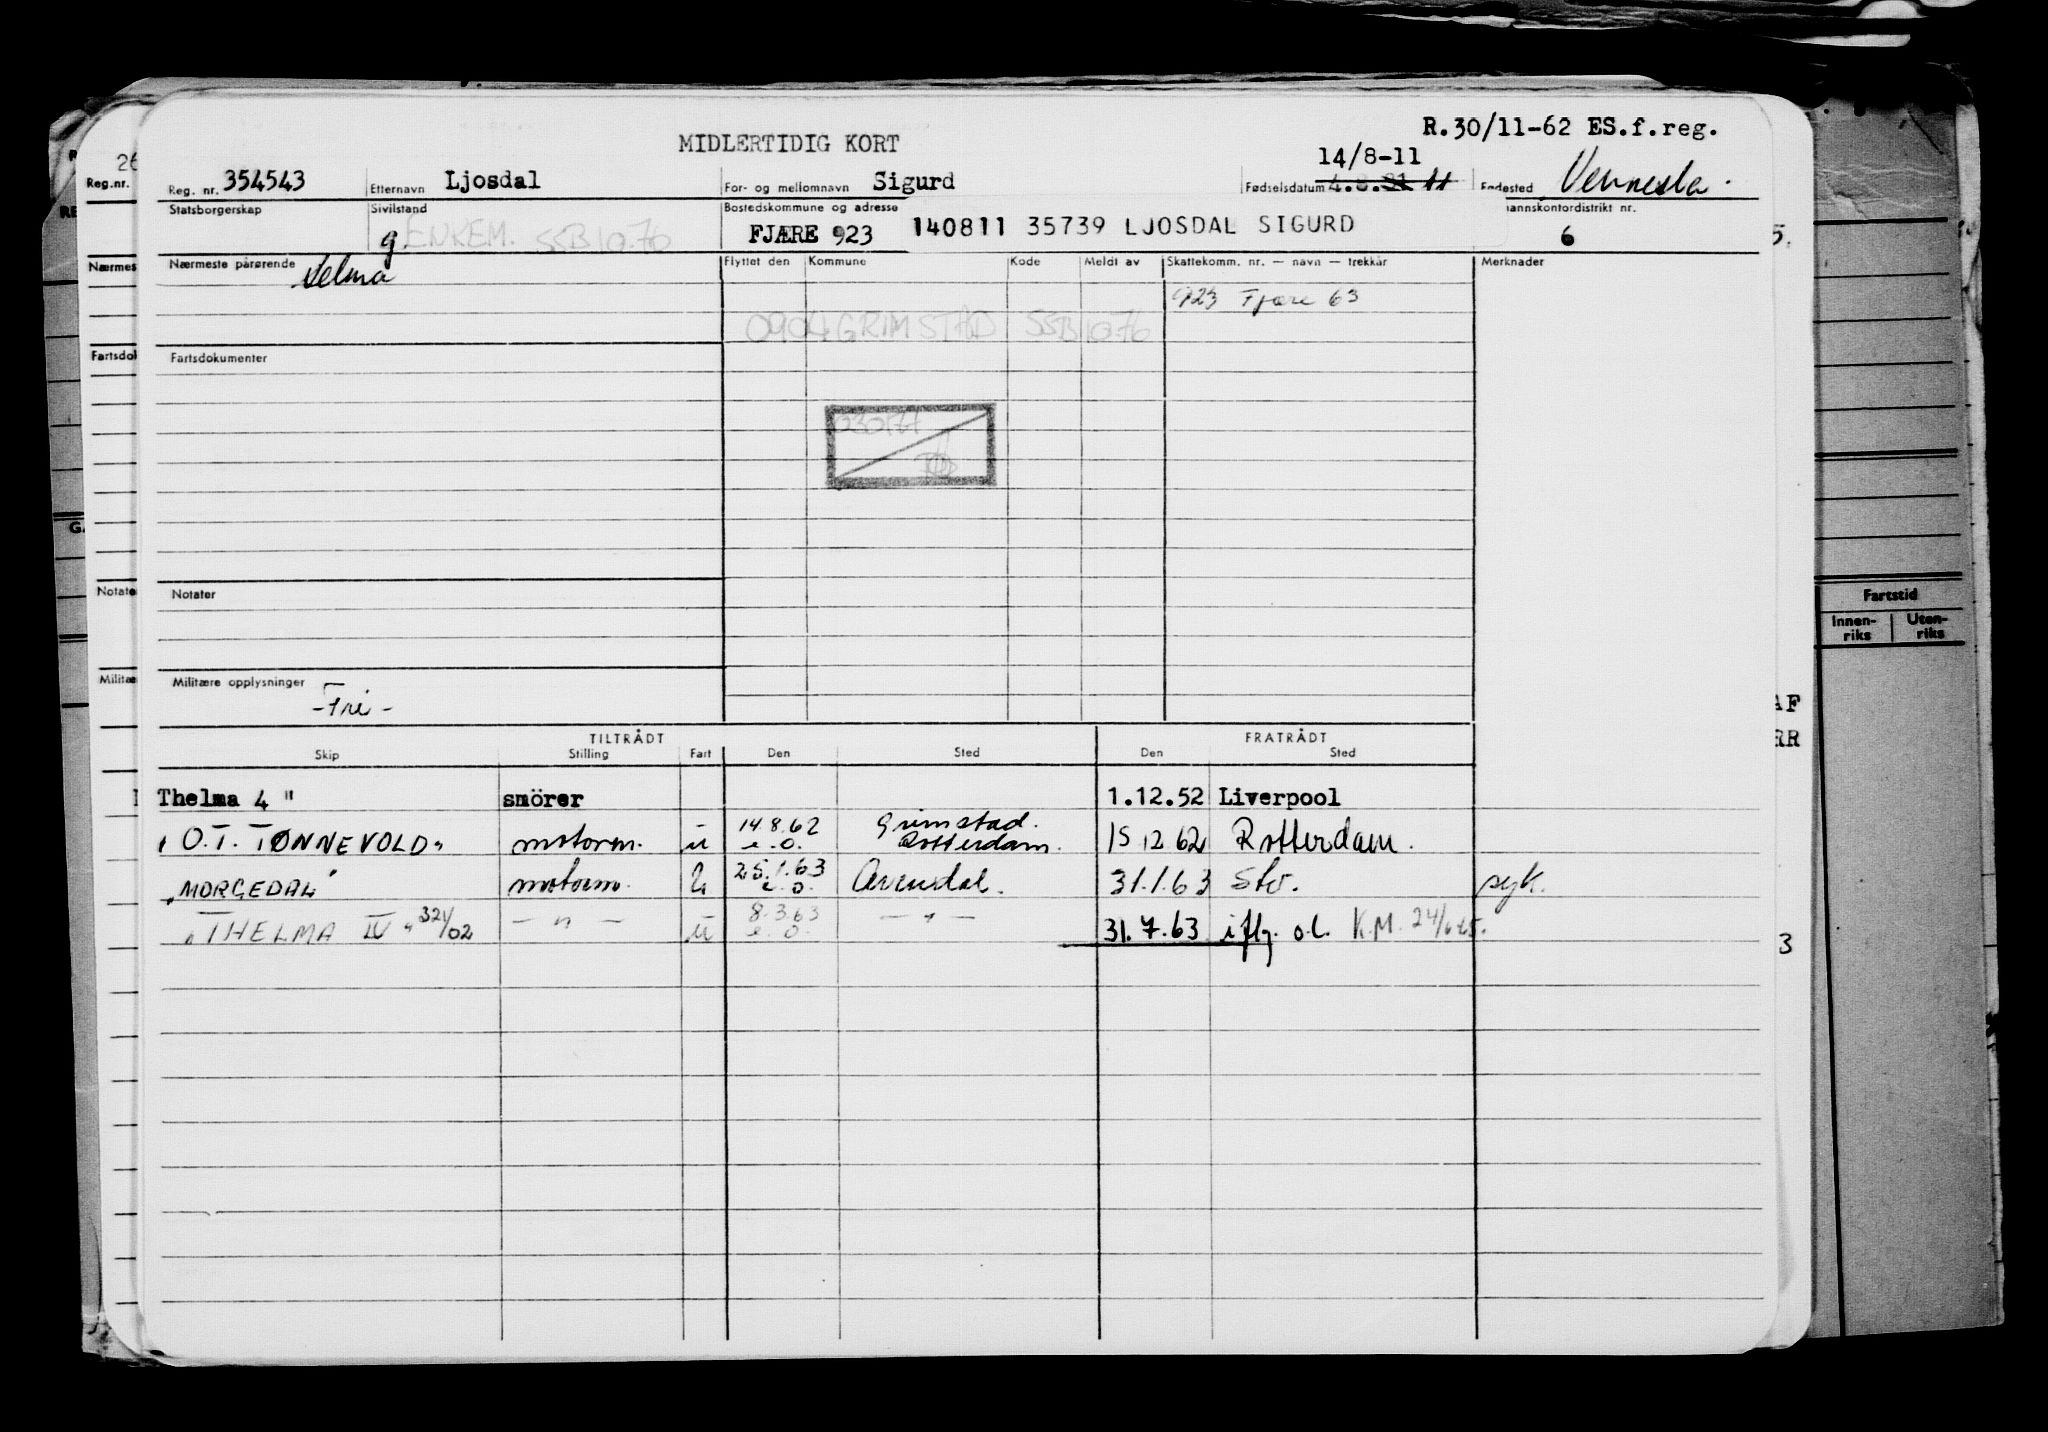 R.30/11-62 ES.f.reg.
MIDLERTIDIG KORT
14/8-11
26
Reg.nr.
Reg. nr. 354543 Etternavn Ljosdal For- og mellomnavn Sigurd Fødselsdatum 11 Fødested Vennesla.
Statsborgerskap Sivilstand Bostedskommune og adresse annskontordistrikt nr.
g. ENKEM. SSB 10.76 FJÆRE 923 140811 35739 LJOSDAL SIGURD 6 5.
Nærmes Nærmeste pårørende Selma Flyttet den Kommune Kode Meldt av Skattekomm. nr. — navn — trekkår Merknader
923 Fjære 63
0904 GRIMSTAD SSB 10.76
Fartsdok Fartsdokumenter
Notate Notater
Fartstid
Innen-riks Uten-riks
Militæ Militære opplysninger
-Fri-
AF
RR
TILTRÅDT FRATRÅDT
Skip Stilling Fart Den Sted Den Sted
Thelma 4 " smörer 1.12.52 Liverpool
"O.T. TØNNEVOLD" motorm. u 14.8.62 e.o. Grimstad. Rotterdam. 15 12 62 Rotterdam.
"MORGEDAL" motorm. u 25.1.63 e.o. Arendal. 31.1.63 Stv. syk.
"THELMA IV" 321/02 — " — u 8.3.63 e.o. — " — 31.7.63 iflg. o.l. K.M.
3